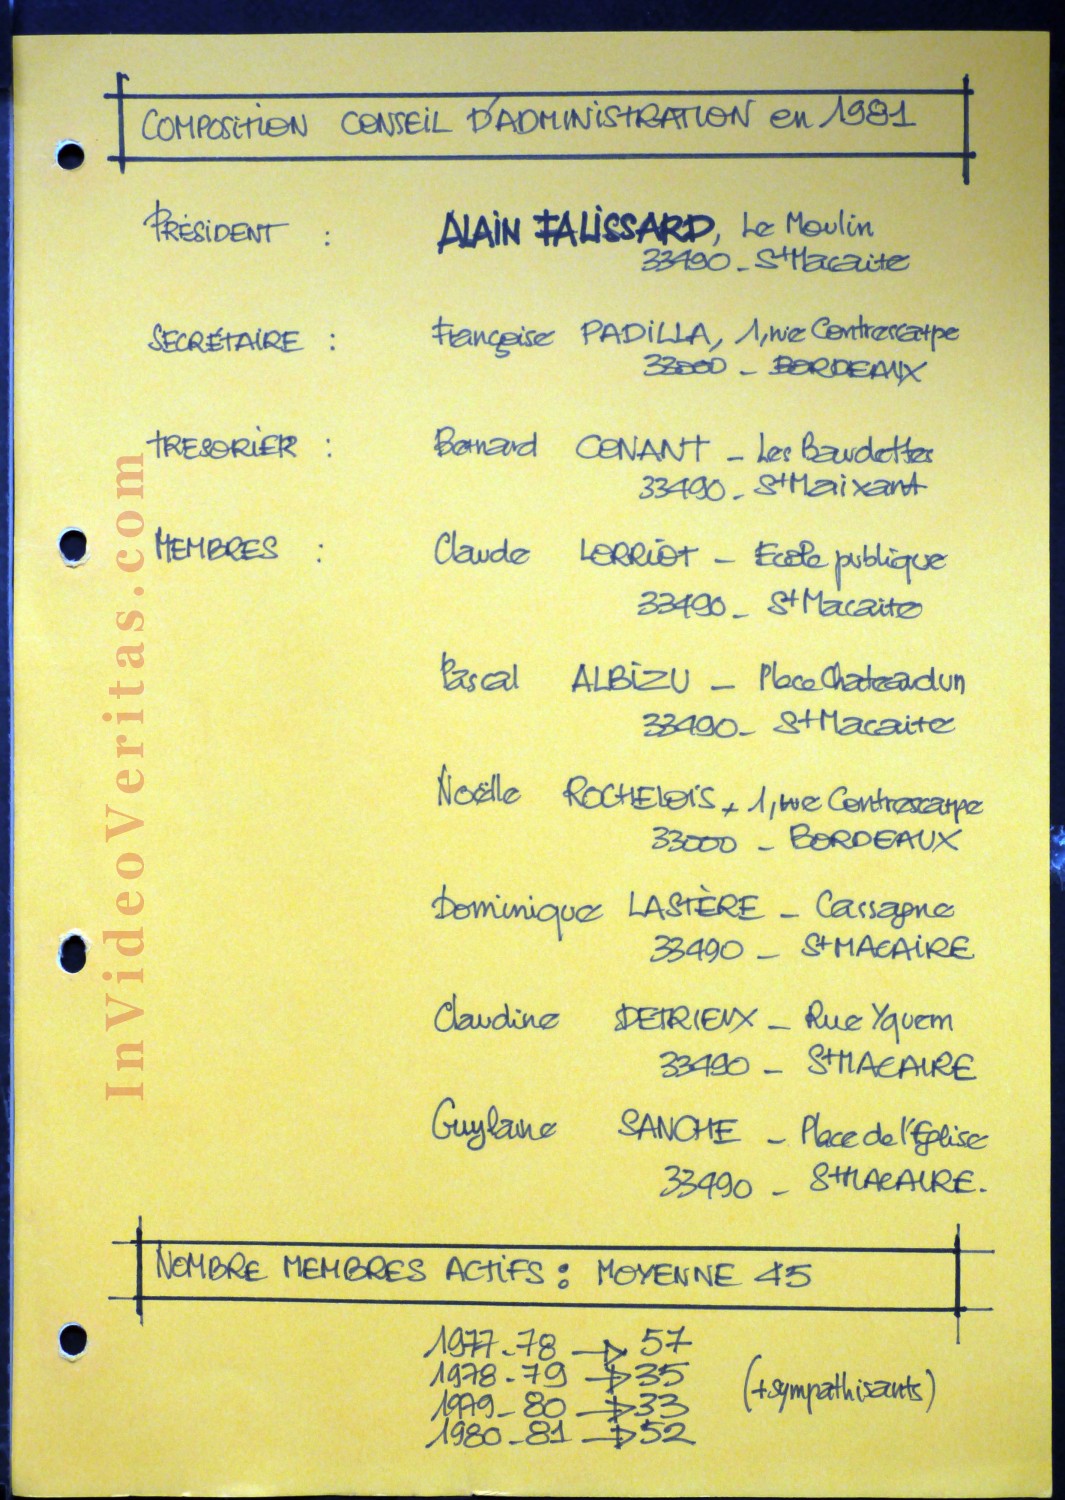 COMPOSITION CONSEIL D'ADMINISTRATION en 1981
PRÉSIDENT : ALAIN FALISSARD, Le Moulin
33490 - St Macaire
SECRÉTAIRE : Françoise PADILLA, 1, rue Contrescarpe
33000 - BORDEAUX
TRESORIER : Bernard CONANT - Les Baudettes
33490 - St Maixant
MEMBRES : Claude LORRIOT - Ecole publique
33490 - St Macaire
Pascal ALBIZU - Place Chateaudun
33490 - St Macaire
Noëlle ROCHELOIS, 1, rue Contrescarpe
33000 - BORDEAUX
Dominique LASTÈRE - Cassagne
33490 - St MACAIRE
Claudine DETRIEUX - Rue Yquem
33490 - St MACAIRE
Guylaine SANCHE - Place de l'Eglise
33490 - St MACAIRE.
NOMBRE MEMBRES ACTIFS : MOYENNE 45
1977-78 → 57
1978-79 → 35
(+ sympathisants)
1979-80 → 33
1980-81 → 52
InVideoVeritas.com